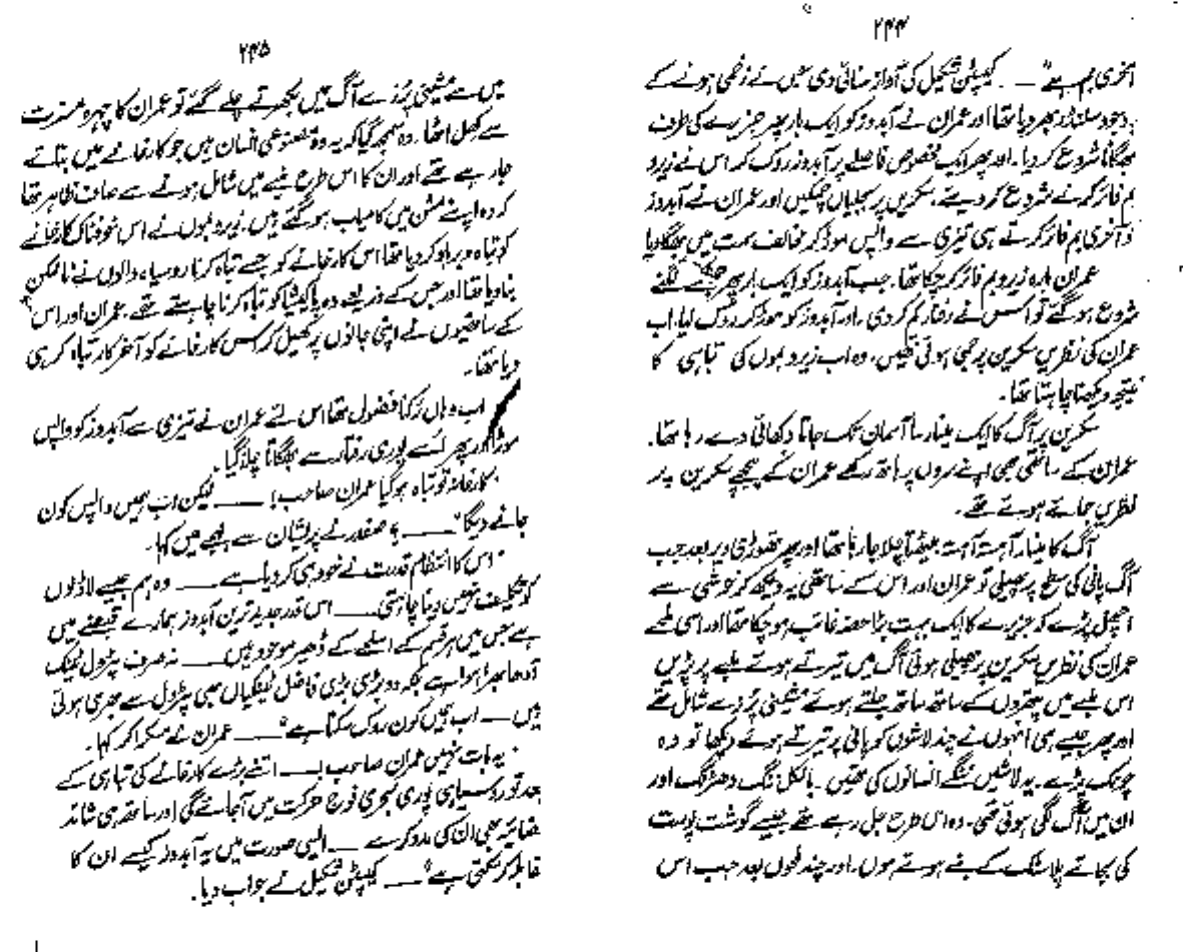 ۲۴۴
آخری بم ہے" ـــ کیپٹن شکیل کی آواز سنائی دی جس نے زخمی ہونے کے
باوجود سلنڈر بھر دیا تھا اور عمران نے آبدوز کو ایک بار پھر جزیرے کی طرف
بھگانا شروع کر دیا۔ اور پھر ایک مخصوص فاصلے پر آبدوز روک کر اس نے زیرو
بم فائر کرنے شروع کر دیئے۔ سکرین پر بجلیاں چمکیں اور عمران نے آبدوز
کو آخری بم فائر کرتے ہی تیزی سے واپس موڑ کر مخالف سمت میں بھگا دیا
عمران بارہ زیرو بم فائر کر چکا تھا۔ جب آبدوز کو ایک بار پھر جھٹکے لگنے
شروع ہو گئے تو اس نے رفتار کم کر دی۔ اور آبدوز کو موڑ کر روک لیا۔ اب
عمران کی نظریں سکرین پر جمی ہوئی تھیں۔ وہ اب زیرو بموں کی تباہی کا
نتیجہ دیکھنا چاہتا تھا۔
سکرین پر آگ کا ایک مینار سا آسمان تک جاتا دکھائی دے رہا تھا۔
عمران کے ساتھی بھی اپنے سروں پر ہاتھ رکھے عمران کے پیچھے سکرین پر
نظریں جمائے ہوئے تھے۔
آگ کا مینار آہستہ آہستہ بیٹھتا چلا جا رہا تھا اور پھر تھوڑی دیر بعد جب
آگ پانی کی سطح پر پھیلی تو عمران اور اس کے ساتھی یہ دیکھ کر خوشی سے
اچھل پڑے کہ جزیرے کا ایک بہت بڑا حصہ غائب ہو چکا تھا اور اسی لمحے
عمران کی نظریں سکرین پر پھیلی ہوئی آگ میں تیرتے ہوئے ملبے پر پڑیں
اس ملبے میں پتھروں کے ساتھ ساتھ جلتے ہوئے مشینی پرزے شامل تھے
اور پھر جیسے ہی انہوں نے چند لاشوں کو پانی پر تیرتے ہوئے دیکھا تو وہ
چونک پڑے۔ یہ لاشیں ننگے انسانوں کی تھیں۔ بالکل ننگ دھڑنگ اور
ان میں آگ لگی ہوئی تھی۔ وہ اس طرح جل رہے تھے جیسے گوشت پوست
کی بجائے پلاسٹک کے بنے ہوئے ہوں۔ اور چند لمحوں بعد جب اس
۲۴۵
میں سے مشینی پرزے آگ میں بکھرتے چلے گئے تو عمران کا چہرہ مسرت
سے کھل اٹھا۔ وہ سمجھ گیا کہ یہ وہ مصنوعی انسان ہیں جو کارخانے میں بنائے
جا رہے تھے اور ان کا اس طرح ملبے میں شامل ہونے سے صاف ظاہر تھا
کہ وہ اپنے مشن میں کامیاب ہو گئے ہیں۔ زیرو بموں نے اس خوفناک کارخانے
کو تباہ و برباد کر دیا تھا اس کارخانے کو جسے تباہ کرنا روسیاہ والوں نے ناممکن
بنا دیا تھا اور جس کے ذریعے وہ پاکیشیا کو تباہ کرنا چاہتے تھے۔ عمران اور اس
کے ساتھیوں نے اپنی جانوں پر کھیل کر اس کارخانے کو آخر کار تباہ کر ہی
دیا تھا۔
اب وہاں رکنا فضول تھا اس لئے عمران نے تیزی سے آبدوز کو واپس
موڑا اور پھر اسے پوری رفتار سے بھگاتا چلا گیا۔
"کارخانہ تو تباہ ہو گیا عمران صاحب! ـــ لیکن اب ہمیں واپس کون
جانے دیگا" ـــ صفدر نے پریشان سے لہجے میں کہا۔
"اس کا انتظام قدرت نے خود ہی کر دیا ہے ـــ وہ ہم جیسے لاڈلوں
کو تکلیف نہیں دینا چاہتی ـــ اس قدر جدید ترین آبدوز ہمارے قبضے میں
ہے جس میں ہر قسم کے اسلحے کے ڈھیر موجود ہیں ـــ نہ صرف پٹرول ٹینک
آدھا بھرا ہوا ہے بلکہ دو بڑی بڑی فاضل ٹینکیاں بھی پٹرول سے بھری ہوئی
ہیں ـــ اب ہمیں کون روک سکتا ہے" ـــ عمران نے مسکرا کر کہا۔
"یہ بات نہیں عمران صاحب! ـــ اتنے بڑے کارخانے کی تباہی کے
بعد تو روسیاہی پوری بحری فوج حرکت میں آ جائے گی اور ساتھ ہی شائد
فضائیہ بھی ان کی مدد کرے ـــ ایسی صورت میں یہ آبدوز کیسے ان کا
مقابلہ کر سکتی ہے" ـــ کیپٹن شکیل نے جواب دیا۔